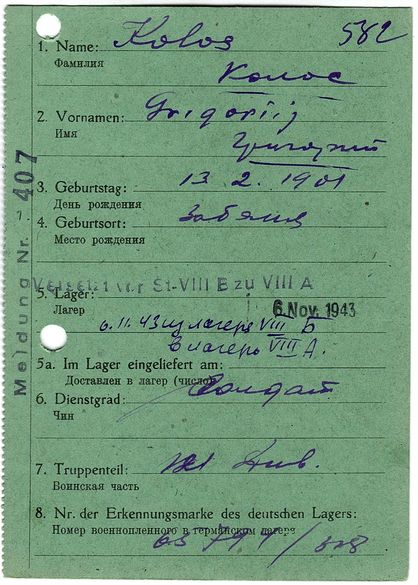 582
1. Name: Kolos
Фамилия
Колос
2. Vornamen: Grigorij
Имя
Григорий
3. Geburtstag: 13. 2. 1901
День рождения
4. Geburtsort:
Место рождения
Meldung Nr. 407
Versetzt von St-VIII E zu VIII A
5. Lager: 6. Nov. 1943
Лагер
6. 11. 43 из лагеря VIII Б
в лагерь VIII А.
5a. Im Lager eingeliefert am:
Доставлен в лагер (число)
6. Dienstgrad: Солдат
Чин
7. Truppenteil: Див.
Воинская часть
8. Nr. der Erkennungsmarke des deutschen Lagers:
Номер военнопленного в германском лагере